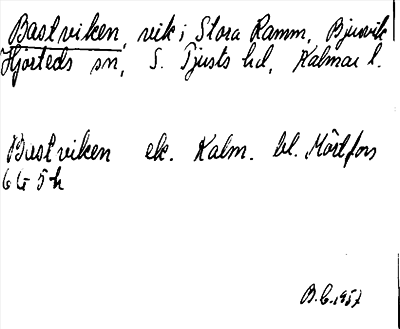 Bastviken, vik i Stora Ramm, Bjursvik
Hjorteds sn, S. Tjusts hd, Kalmar l.
Bastviken ek. Kalm. bl. Mörtfors
6G 5h
B.C. 1957